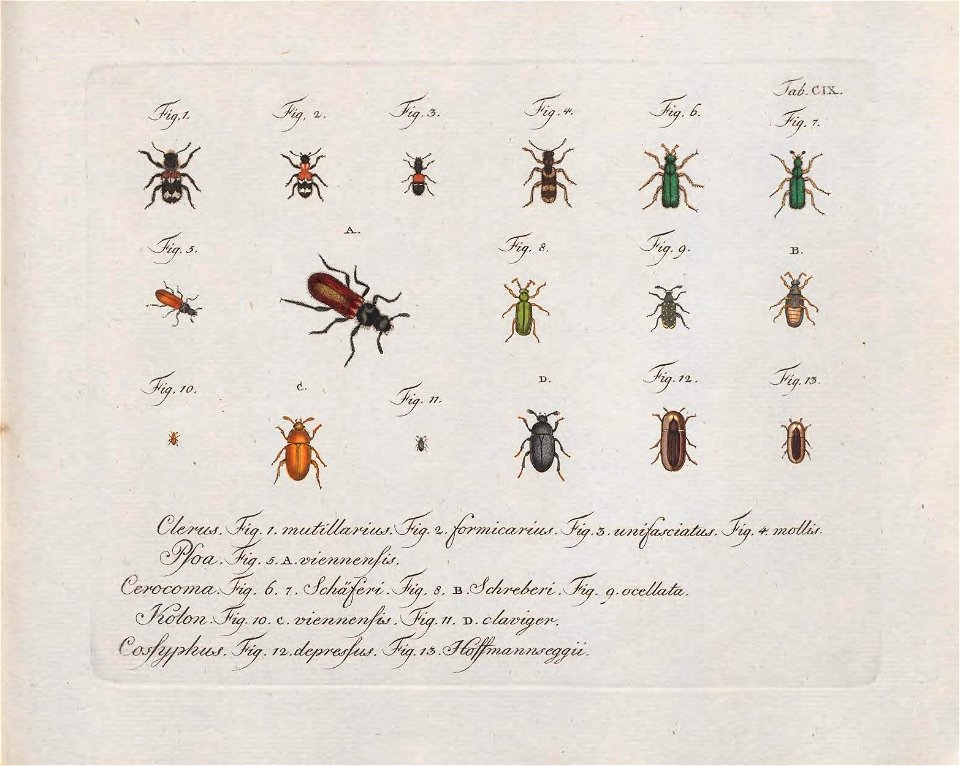 Tab. CIX.
Fig. 1. Fig. 2. Fig. 3. Fig. 4. Fig. 6. Fig. 7.
Fig. 5. A. Fig. 8. Fig. 9. B.
Fig. 10. C. Fig. 11. D. Fig. 12. Fig. 13.
Clerus. Fig. 1. mutillarius. Fig. 2. formicarius. Fig. 3. unifasciatus. Fig. 4. mollis.
Psoa. Fig. 5. A. viennensis.
Cerocoma. Fig. 6. 7. Schäferi. Fig. 8. B. Schreberi. Fig. 9. ocellata.
Kolon. Fig. 10. C. viennensis. Fig. 11. D. claviger.
Cossyphus. Fig. 12. depressus. Fig. 13. Hoffmannseggii.